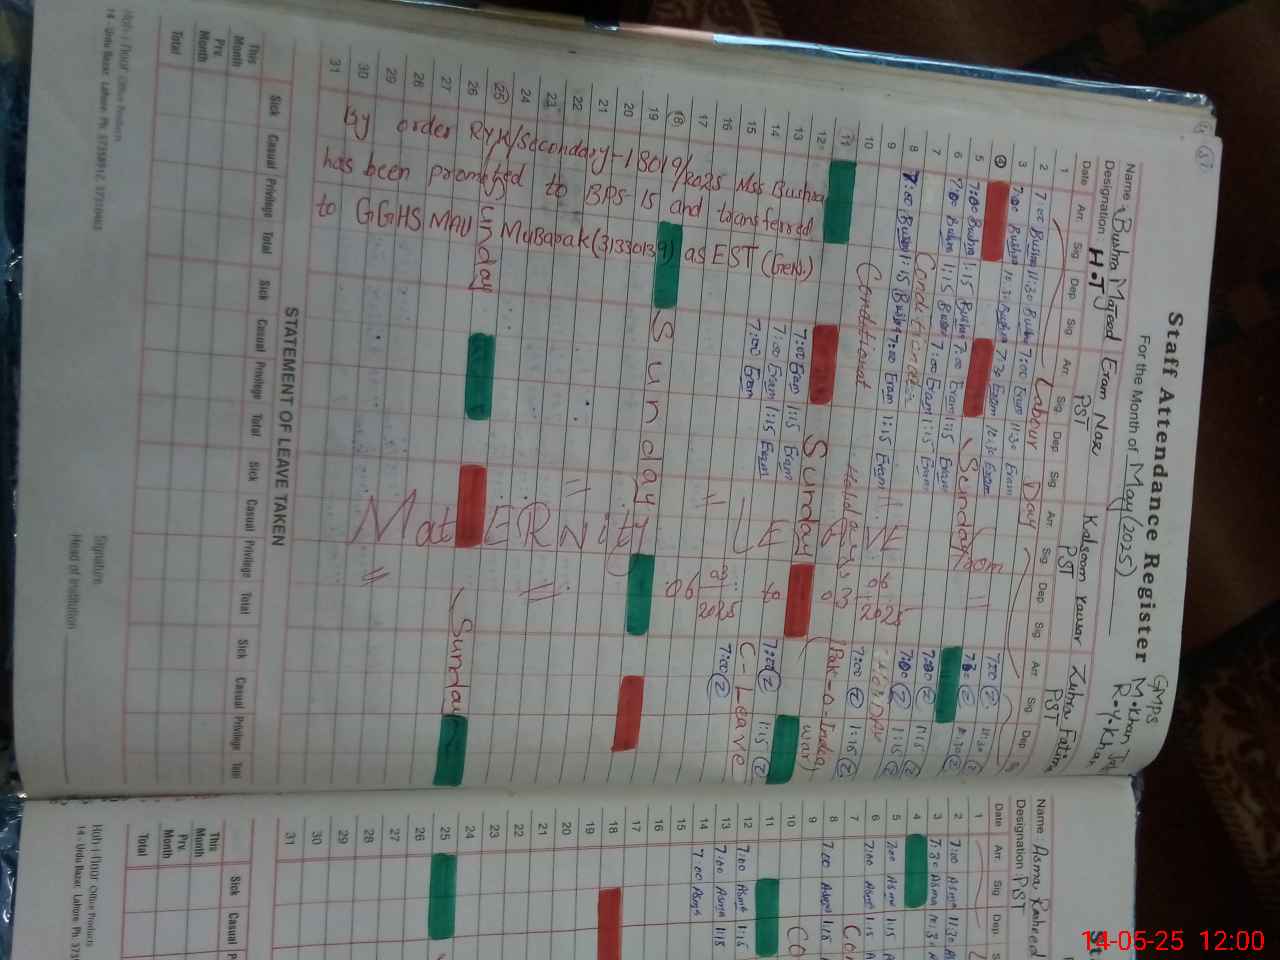 Staff Attendance Register
For the Month of May (2025)
GMPS
M.Khan
R.Y.Khan
Name Bushra Majeed Eram Naz Kalsoom Kausar Zuhra Fatima
Designation H.T PST PST PST
Date Arr. Sig Dep. Sig Arr. Sig Dep. Sig Arr. Sig Dep Sig Arr. Sig Dep
1 Labour Day
2 7:00 Bushra 11:30 Bushra 7:00 Eram 11:30 Eram 7:00 11:30
3 7:00 Bushra 10:30 Bushra 7:30 Eram 10:30 Eram 11:30
4 Sunday
5 7:00 Bushra 1:15 Bushra 7:00 Eram 1:15 Eram 7:00 1:15
6 7:00 Bushra 1:15 Bushra 7:00 Eram 1:15 Eram 7:00 1:15
7 Conditional
8 7:00 Bushra 1:15 Bushra 7:00 Eram 1:15 Eram 7:00 1:15
9 Conditional Holidays (Pak-o-India war)
10
11 Sunday
12 7:00 Eram 1:15 Eram
13 7:00 Eram 1:15 Eram 7:00 1:15
14 7:00 Eram C-Leave
15 7:00
16
17
18 Sunday
19
20
21
22
23
24
25 Sunday Sunday
26
27
28
29
30
31
From
06
03
2025
to
06
03
2025
MatERNity
By order RYK/Secondary-1 8019/2025 Mss Bushra
has been promoted to BPS-15 and transferred
to GGHS MAU Mubarak (31330139) as EST (Gen.)
STATEMENT OF LEAVE TAKEN
Sick Casual Privilege Total Sick Casual Privilege Total Sick Casual Privilege Total Sick Casual Privilege Total
This Month
Prv. Month
Total
Signature
Head of Institution
14 - Urdu Bazar, Lahore.
Name Asma Rasheed
Designation PST
Date Arr. Sig Dep.
1
2 7:00 Asma 11:30
3 7:30 Asma 11:30
4
5 7:00 Asma 1:15
6 7:00 Asma 1:15
7
8 7:00 Asma 1:15
9
10
11
12 7:00 Asma 1:15
13 7:00 Asma 1:15
14 7:00 Asma
15
16
17
18
19
20
21
22
23
24
25
26
27
28
29
30
31
Sick Casual
This Month
Prv. Month
Total
14 - Urdu Bazar, Lahore.
14-05-25 12:00